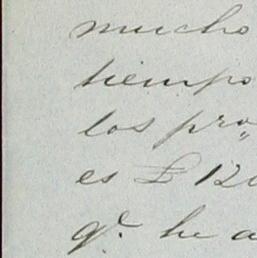 mucho
tiempo
los pro
es £ 120
q.e he a